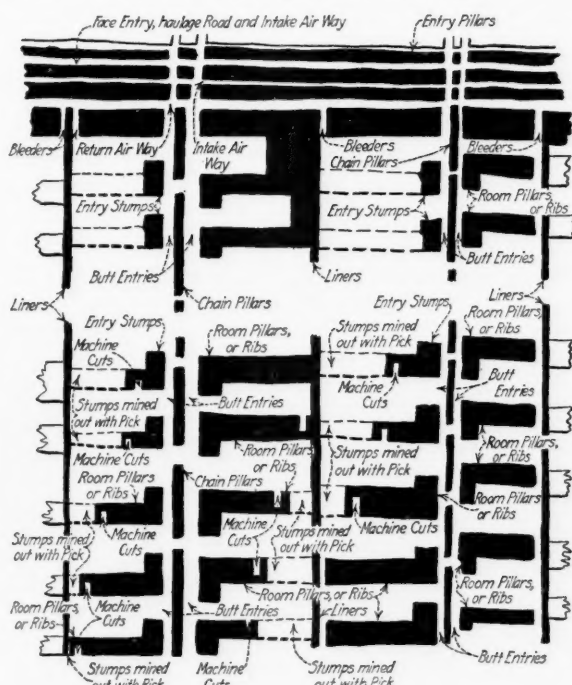 Face Entry, haulage Road and Intake Air Way
Entry Pillars
Bleeders
Return Air Way
Intake Air
Way
Bleeders
Chain Pillars
Bleeders
Entry Stumps
Entry Stumps
Room Pillars
or Ribs
Butt Entries
Liners
Butt Entries
Liners
Chain Pillars
Liners
Entry Stumps
Machine
Cuts
Room Pillars,
or Ribs
Stumps mined
out with Pick
Entry Stumps
Room Pillars
or Ribs
Machine
Cuts
Butt
Entries
Stumps mined
out with Pick
Butt Entries
Machine Cuts
Room Pillars
or Ribs
Stumps mined
out with Pick
Room Pillars
or Ribs
Room Pillars
or Ribs
Chain Pillars
Room Pillars
or Ribs
Stumps mined
out with Pick
Machine
Cuts
Machine
Cuts
Stumps mined
out with Pick
Machine Cuts
Room Pillars,
or Ribs
Room Pillars
or Ribs
Machine
Cuts
Butt Entries
Room Pillars, or Ribs
Liners
Butt Entries
Stumps mined
out with Pick
Machine
Cuts
Stumps mined
out with Pick